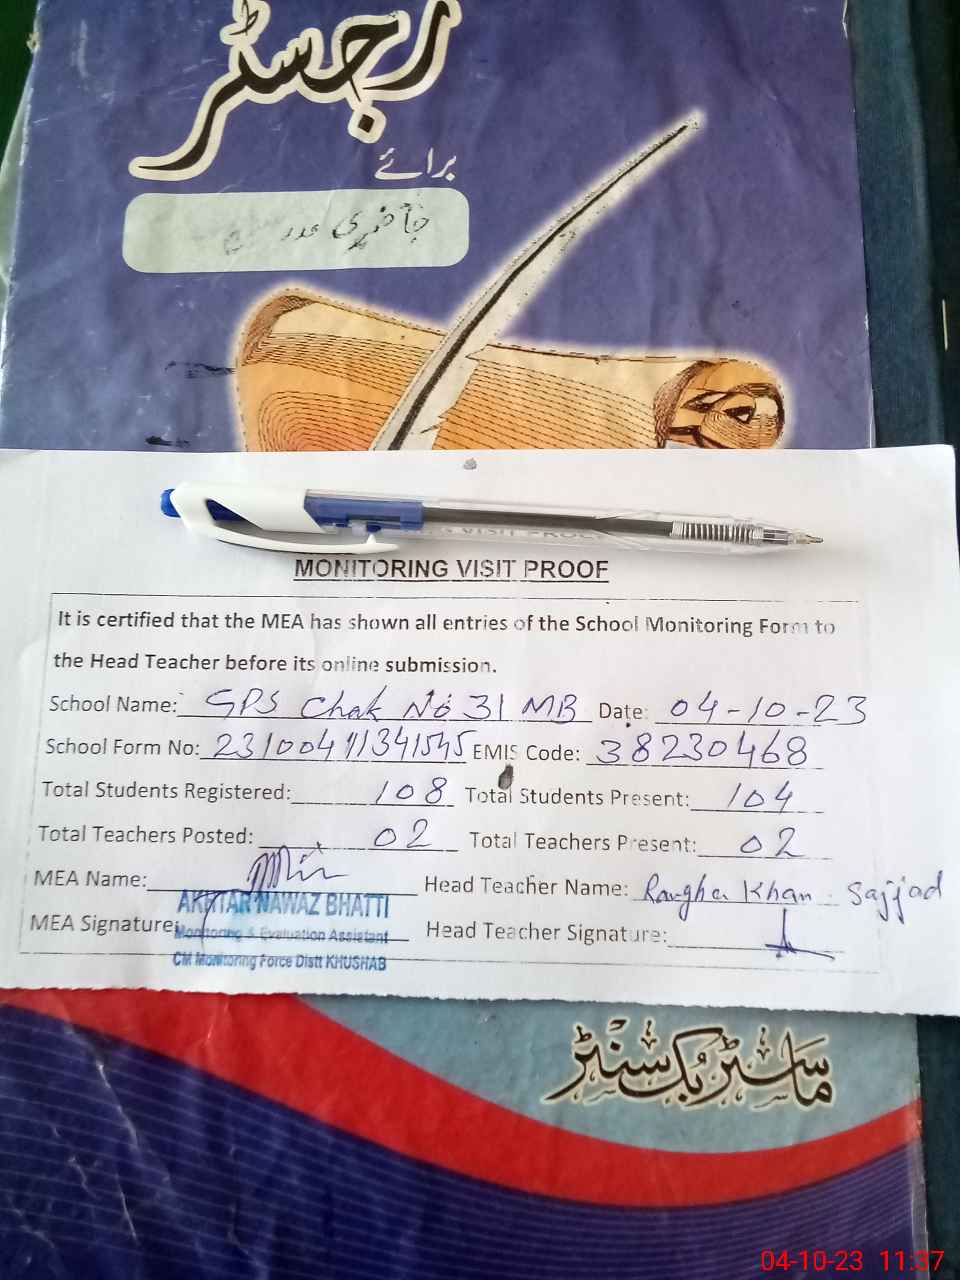 رجسٹر
برائے
حاضری
MONITORING VISIT PROOF
It is certified that the MEA has shown all entries of the School Monitoring Form to
the Head Teacher before its online submission.
School Name: GPS Chak No 31 MB Date: 04-10-23
School Form No: EMIS Code: 38230468
Total Students Registered: 108 Total Students Present: 104
Total Teachers Posted: 02 Total Teachers Present: 02
MEA Name: Head Teacher Name: Khan Sajjad
AKHTAR NAWAZ BHATTI
MEA Signature: Head Teacher Signature:
Monitoring & Evaluation Assistant
CM Monitoring Force Distt KHUSHAB
ماسٹر بک سنٹر
04-10-23 11:37